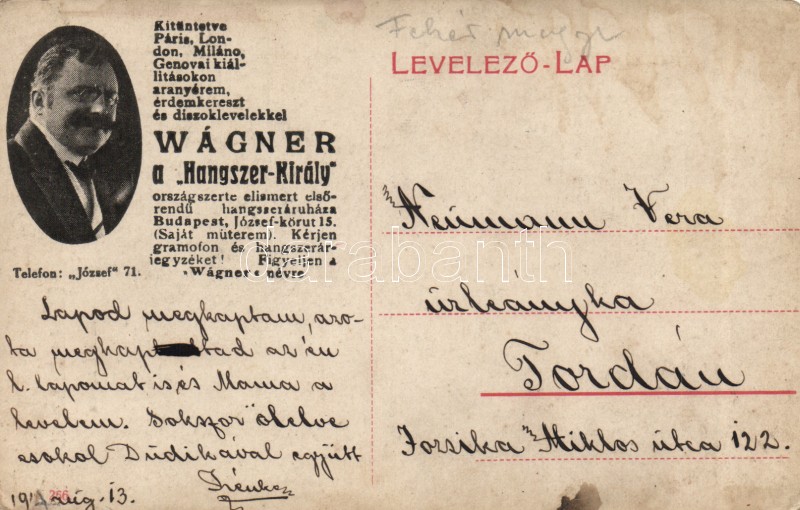 Kitüntetve
Páris, Lon-
don, Miláno,
Genovai kiál-
litásokon
aranyérem,
érdemkereszt
és diszoklevelekkel
WÁGNER
a „Hangszer-Király"
országszerte elismert első-
rendű hangszeráruháza
Budapest, József-körut 15.
(Saját műterem). Kérjen
gramofon és hangszerár-
jegyzéket! Figyeljen a
»Wágner« névre
Telefon: „József" 71.
Lapod megkaptam, azo-
ta megkaptad az én
l. lapomat is és Mama a
levelem. Sokszor ölelve
csokol Dudikával együtt
Irénke
aug. 13.
266
Fehér
LEVELEZŐ-LAP
Neumann Vera
úrleányka
Tordán
Jorsika Miklos útca 122.
darabanth